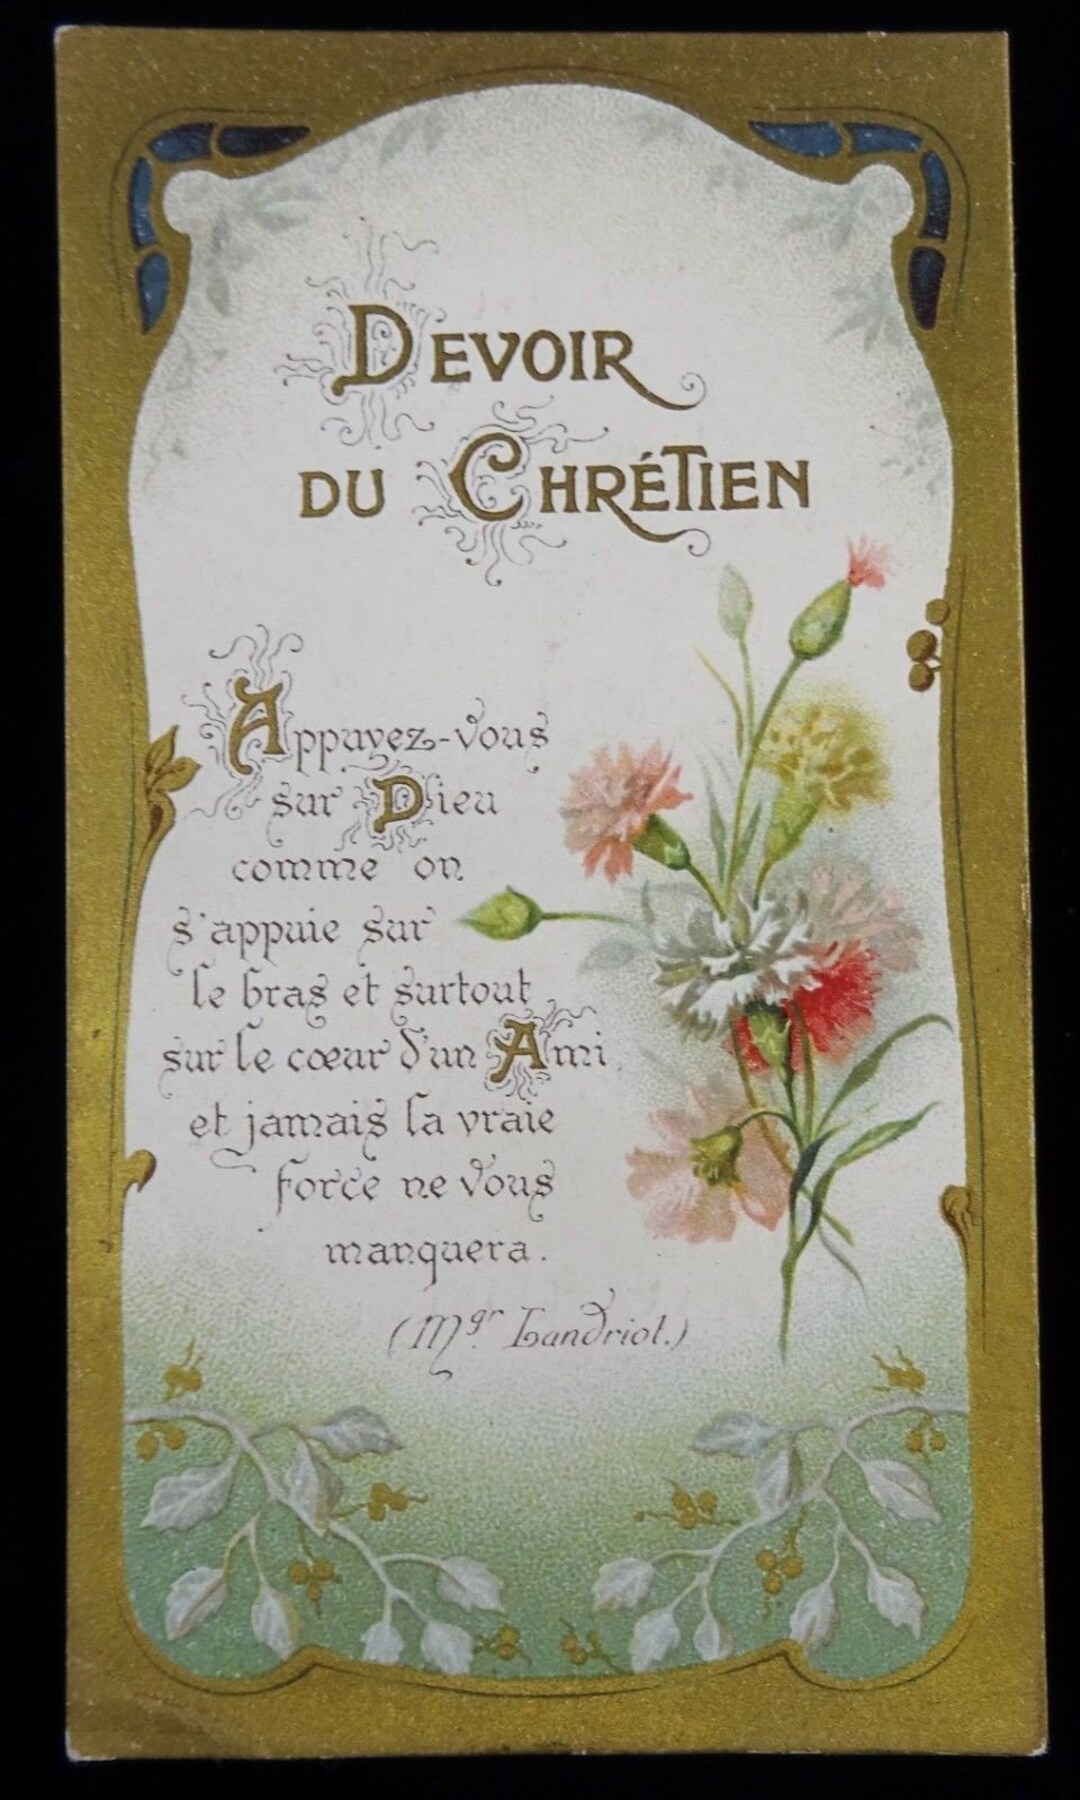 DEVOIR
DU CHRÉTIEN
Appuyez-vous
sur Dieu
comme on
s'appuie sur
le bras et surtout
sur le cœur d'un Ami,
et jamais la vraie
force ne vous
manquera.
(Mgr Landriot.)